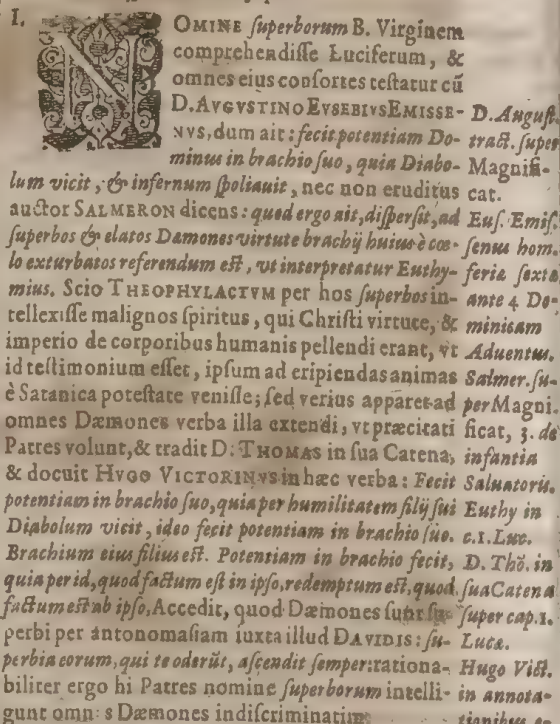 I.
NOMINE superborum B. Virginem
comprehendisse Luciferum, &
omnes eius consortes testatur cũ
D. AVGVSTINO EVSEBIVS EMISSE-
NVS, dum ait: fecit potentiam Do-
minus in brachio suo, quia Diabo-
lum vicit, & infernum spoliauit, nec non eruditus
auctor SALMERON dicens: quod ergo ait, dispersit, ad
superbos & elatos Dæmones virtute brachij huius è cœ-
lo exturbatos referendum est, vt interpretatur Euthy-
mius. Scio THEOPHYLACTVM per hos superbos in-
tellexisse malignos spiritus, qui Christi virtute, &
imperio de corporibus humanis pellendi erant, vt
id testimonium esset, ipsum ad eripiendas animas
è Satanica potestate venisse; sed verius apparet ad
omnes Dæmones verba illa extendi, vt præcitati
Patres volunt, & tradit D. THOMAS in sua Catena,
& docuit HVGO VICTORINVS in hæc verba: Fecit
potentiam in brachio suo, quia per humilitatem filij sui
Diabolum vicit, ideo fecit potentiam in brachio suo.
Brachium eius filius est. Potentiam in brachio fecit,
quia per id, quod factum est in ipso, redemptum est, quod
factum est ab ipso. Accedit, quod Dæmones sunt su-
perbi per antonomasiam iuxta illud DAVIDIS: su-
perbia eorum, qui te oderũt, ascendit semper: rationa-
biliter ergo hi Patres nomine superborum intelli-
gunt omnes Dæmones indiscriminatim
D. August.
tract. super
Magnifi-
cat.
Eus. Emis-
senus hom.
feria sexta
ante 4 Do-
minicam
Aduentus.
Salmer. su-
per Magni.
ficat, 3. de
infantia
Saluatoris.
Euthy in
c.1. Luc.
D. Thõ. in
sua Catena
super cap.1.
Lucæ.
Hugo Vict.
in annota-
tionibus